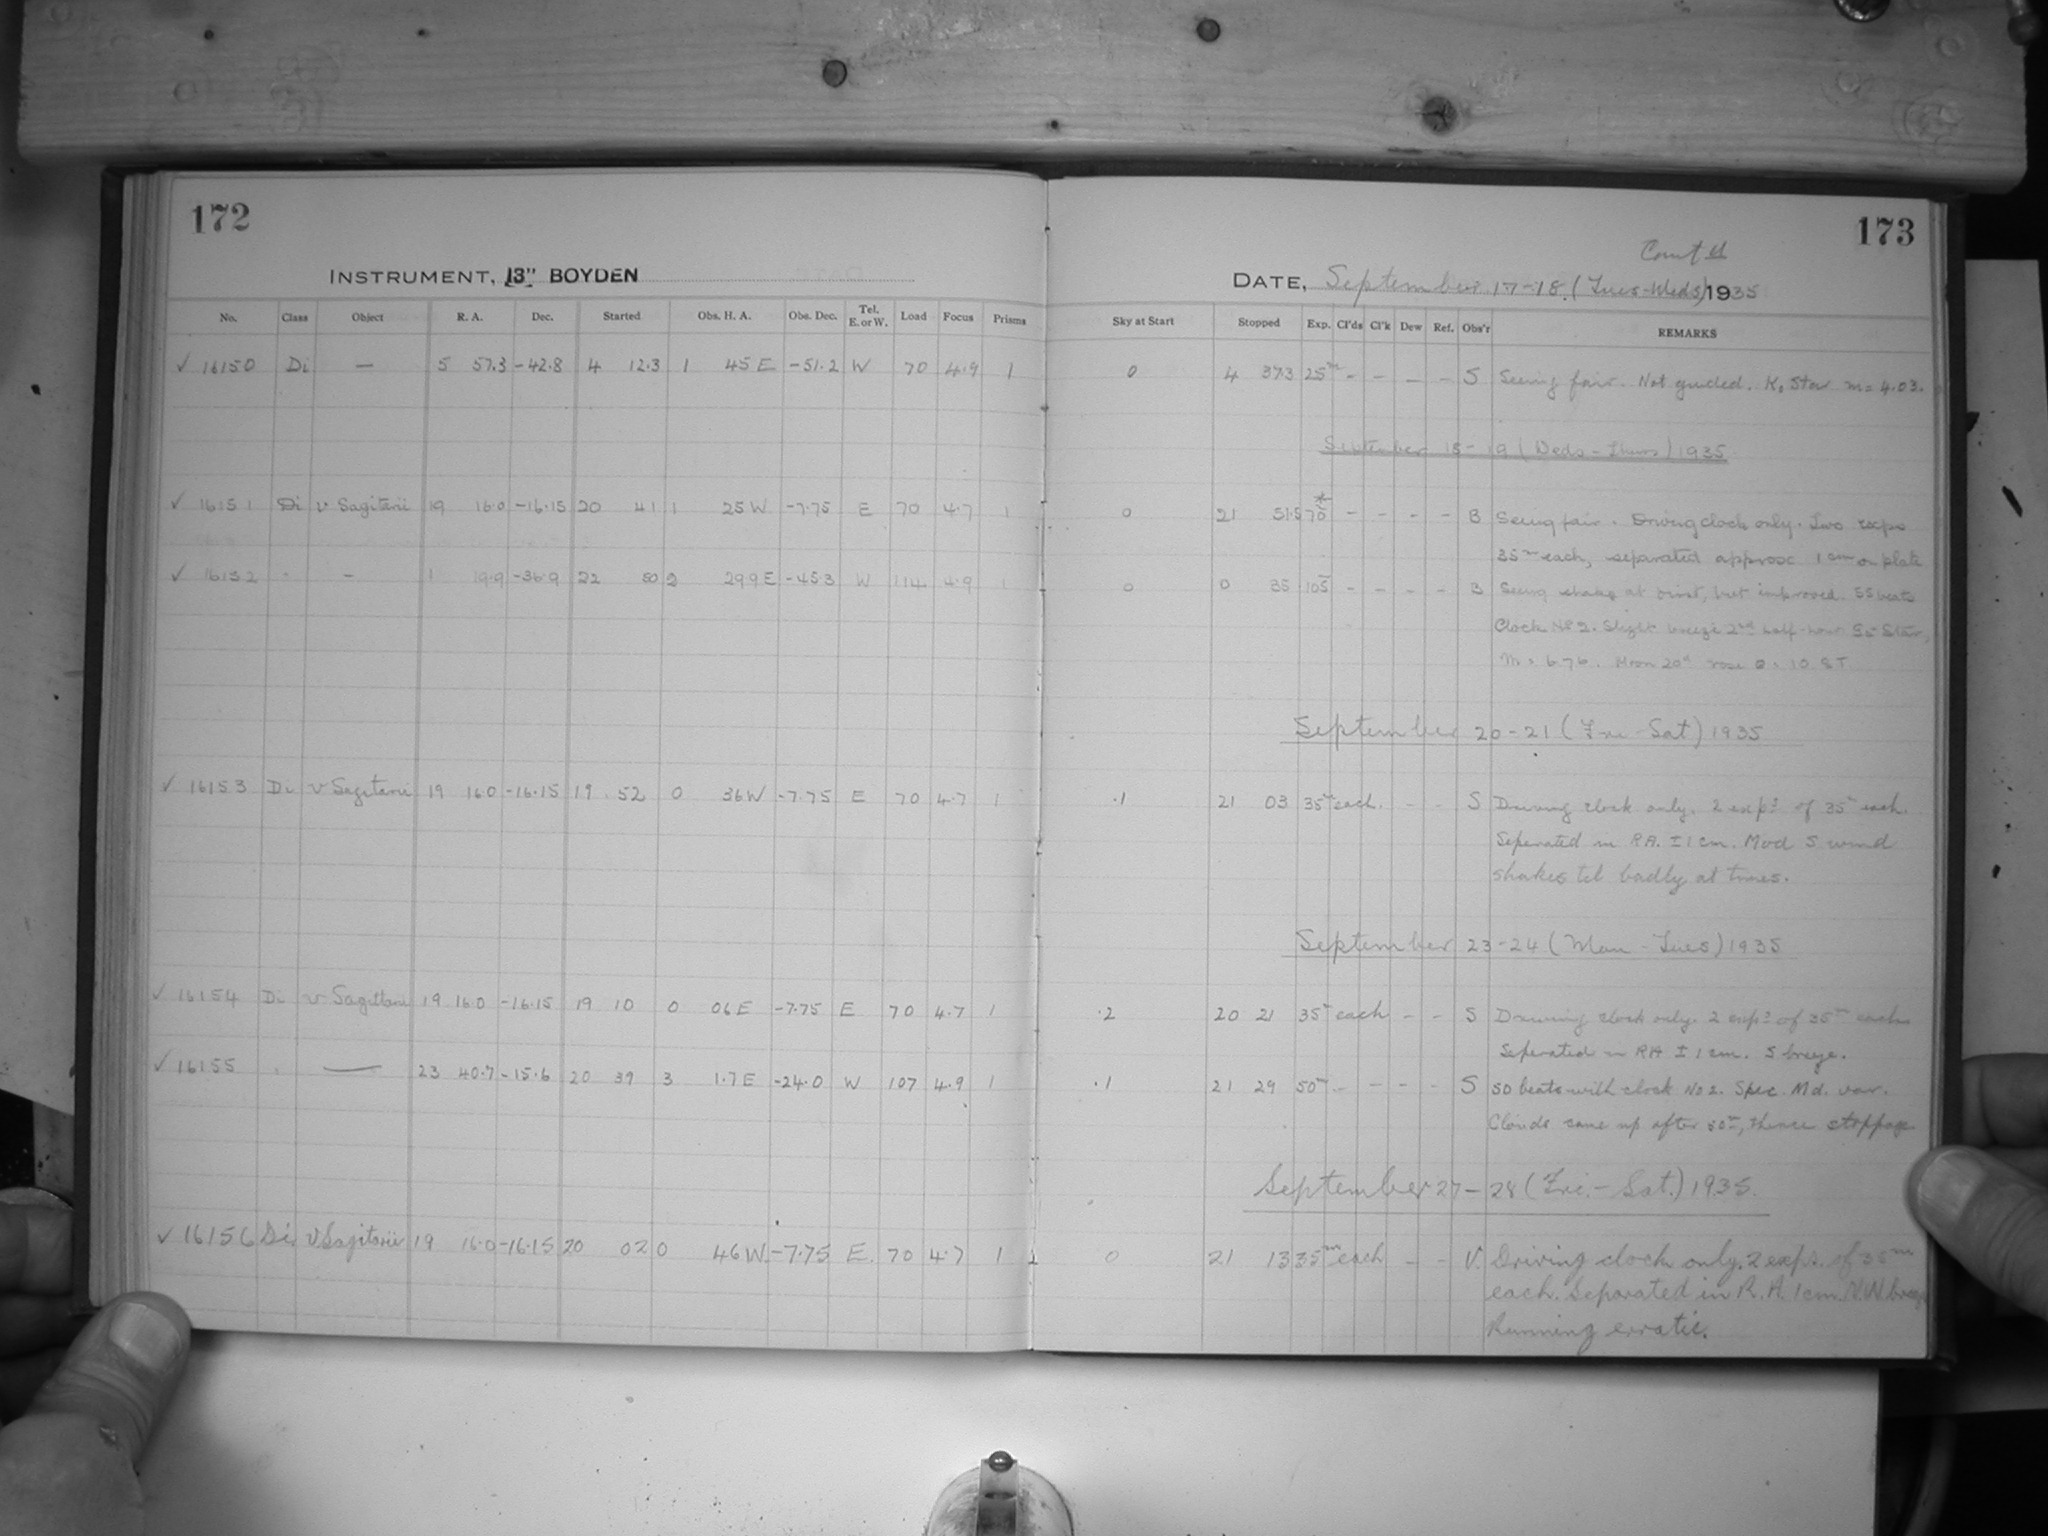 172
173
Cont'd
INSTRUMENT, 13" BOYDEN
DATE, September 17-18 (Tues-Weds) 1935
No. Class Object R. A. Dec. Started Obs. H. A. Obs. Dec. Tel. E. or W. Load Focus Prisms Sky at Start Stopped Exp. Cl'ds Cl'k Dew Ref. Obs'r REMARKS
✓ 16150 Di — 5 57.3 -42.8 4 12.3 1 45 E -51.2 W 70 4.9 1 0 4 37.3 25m - - - - S Seeing fair. Not guided. K0 Star m = 4.03.
September 18-19 (Weds-Thurs) 1935
✓ 16151 Di v Sagitarii 19 16.0 -16.15 20 41 1 25 W -7.75 E 70 4.7 1 0 21 51.5 70m - - - - B Seeing fair. Driving clock only. Two exps
35m each, separated approx 1 cm on plate
✓ 16152 " - 1 19.9 -36.9 22 50 2 29.9 E -45.3 W 114 4.9 1 0 0 35 105m - - - - B Seeing shaky at first, but improved. 55 beats
Clock No 2. Slight breeze 2nd half-hour. Star,
m = 6.76. Moon 20d rose 0.10 ST
September 20-21 (Fri-Sat) 1935
✓ 16153 Di v Sagitarii 19 16.0 -16.15 19 52 0 36 W -7.75 E 70 4.7 1 .1 21 03 35m each. - - S Driving clock only. 2 exps of 35m each.
Seperated in RA. ± 1 cm. Mod S wind
shakes tel badly at times.
September 23-24 (Mon-Tues) 1935
✓ 16154 Di v Sagittarii 19 16.0 -16.15 19 10 0 06 E -7.75 E 70 4.7 1 .2 20 21 35m each - - S Driving clock only. 2 exps of 35m each
Seperated in RA ± 1 cm. S breeze.
✓ 16155 " — 23 40.7 -15.6 20 39 3 1.7 E -24.0 W 107 4.9 1 .1 21 29 50m - - - - S 50 beats with clock No 2. Spec. Md. var.
Clouds came up after 50m, thence stoppage
September 27-28 (Fri.-Sat.) 1935.
✓ 16156 Di v Sagitarii 19 16.0 -16.15 20 02 0 46 W. -7.75 E. 70 4.7 1 0 21 13 35m each - - V. Driving clock only. 2 exps. of 35m
each. Separated in R.A. 1 cm. N.W. breeze
Running erratic.